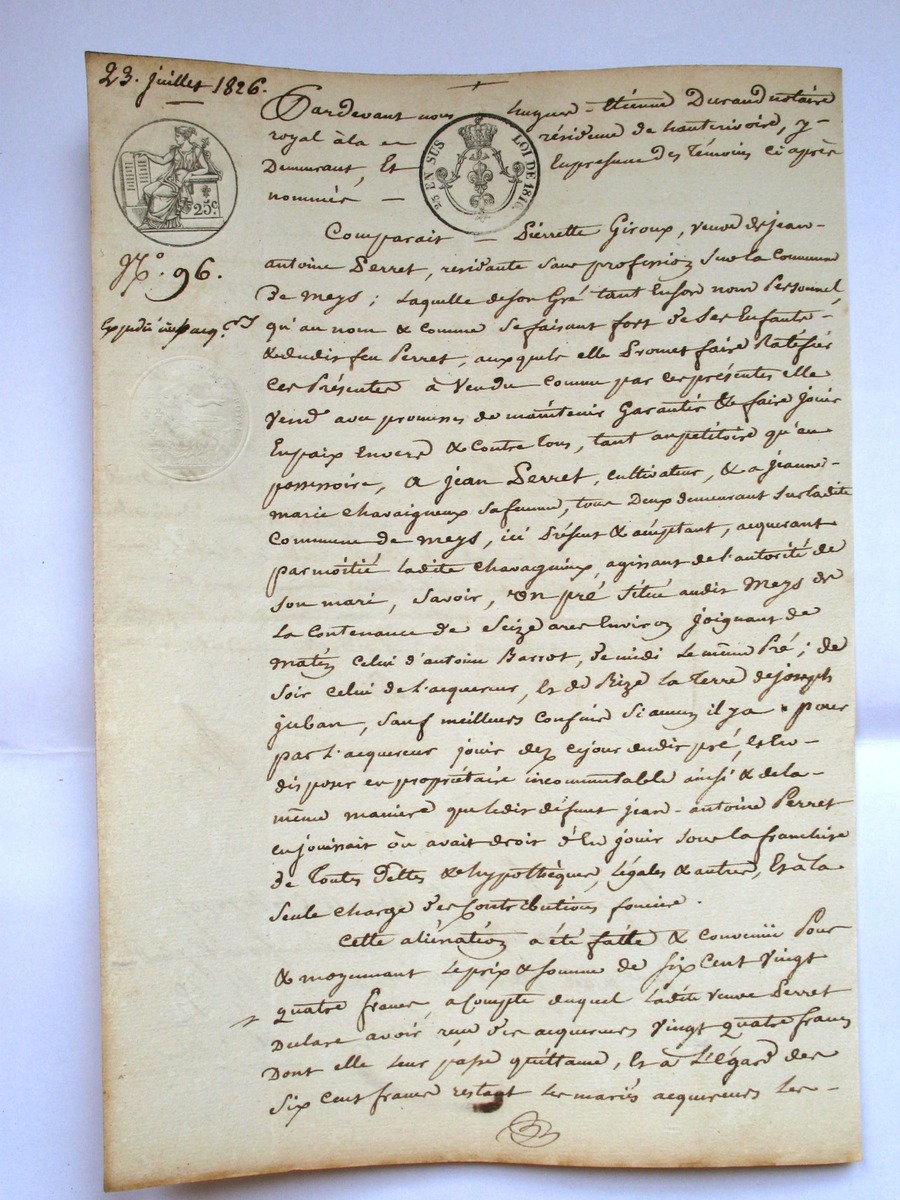 23. juillet 1826.
Pardevant nous hugue-Etienne Durand notaire
royal à la résidence de hauterivoire, y-
Demeurant, Et En presence des Témoins ci après
nommés -
25 EN SUS
LOI DE 1816.
25c.
N.° 96.
Comparait - Pierrette Giroux, veuve de jean-
antoine Perret, residante sans profession sur la Commune
De meys; Laquelle de son Gré tant En son nom Personnel,
qu'au nom & comme se faisant fort de ses Enfants-
& dudit feu Perret, auxquels elle Promet faire Ratifier
ces Présentes à Vendu comme par ces présentes elle
vend avec promesses de maintenir Garantir & faire jouir
En paix Envers & Contre tous, tant au pétitoire qu'au
possessoire, a jean Perret, cultivateur, & a jeanne-
marie Chavaigneux sa femme, tous Deux demeurant sur ladite
Commune de meys, ici Présent & acceptant, acquerant
par moitié ladite Chavaigneux, agissant de l'autorité de
son mari, Savoir, un pré Situé audit Meys de
La Contenance de Seize ares Environ joignant de
matin celui d'antoine Barrot, de midi Le même Pré; de
soir celui de L'acquereur, Et de Bize La Terre de joseph
juban, sauf meilleurs confins si aucun il y a pour
par L'acquereur jouir dez cejour dudit pré, et En-
disposer en propriétaire incommutable ainsi & de la-
même maniere que ledit défunt jean-antoine Perret
en jouissait où avait droit d'En jouir sous la franchise
de Toutes Dettes & hypothèques, Légales & autres, Et à la
seule charge des Contributions foncière.
Cette aliénation a été faite & convenüe Pour
& moyennant Le prix & somme de Six Cent Vingt
quatre francs, a Compte duquel Ladite veuve Perret
Declare avoir reçu des acquereurs Vingt quatre francs
Dont elle Leur passe quittance, Et à L'égard des
Six Cent francs restant Les mariés acquereurs Les-